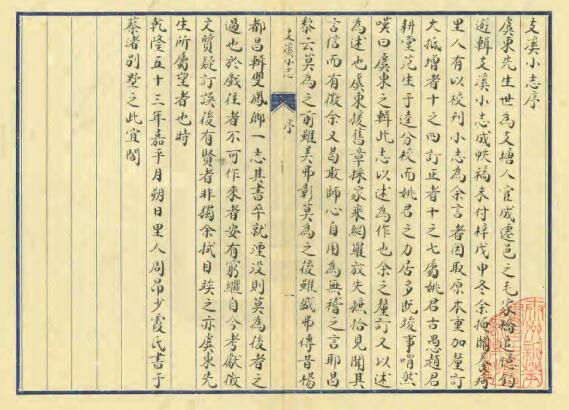 支溪小志序
虞東先生世為支塘人官成遷邑之毛家橋追憶釣
遊輯支溪小志成帙稿未付梓戊申冬余掩關養疴
里人有以校刊小志為余言者因取原本重加釐訂
大抵增者十之四訂正者十之七屬姚君古愚趙君
耕堂范生于逵分校而姚君之力居多既竣事喟然
嘆曰虞東之輯此志以述為作也余之釐訂又以述
為述也虞東援舊章採家乘網羅放失摭拾見聞其
言信而有徵余又曷敢師心自用為無稽之言耶昌
黎云莫為之前雖美弗彰莫為之後雖盛弗傳昔楊
支溪小志 序 一
都昌輯雙鳳鄉一志其書卒就湮沒則莫為後者之
過也於戲往者不可作來者安有窮繼自今考獻徵
文質疑訂誤後有賢者非獨余拭目竢之亦虞東先
生所屬望者也時
乾隆五十三年嘉平月朔日里人周昂少霞氏書于
蔡渚別墅之此宜閣